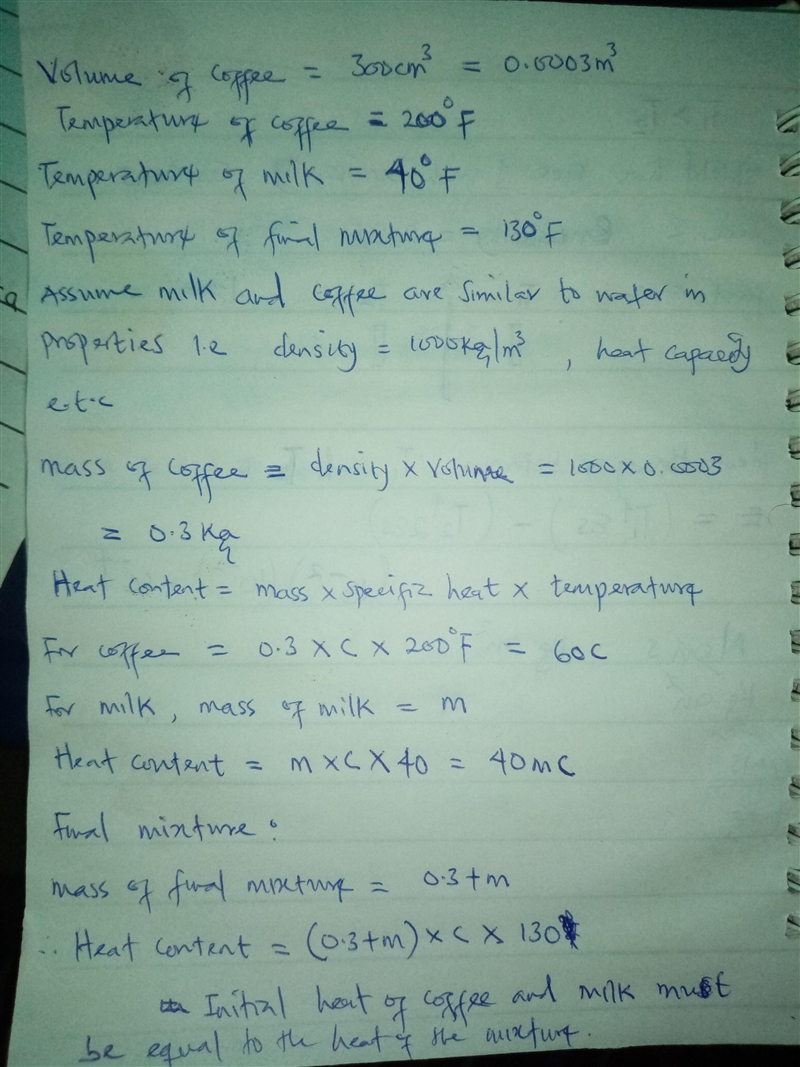 Volume of coffee = 300cm³ = 0.0003m³
Temperature of coffee = 200°F
Temperature of milk = 40°F
Temperature of final mixture = 130°F
Assume milk and coffee are similar to water in
properties i.e density = 1000kg/m³, heat capacity
e.t.c
mass of coffee = density × volume = 1000 × 0.0003
= 0.3kg
Heat content = mass × specific heat × temperature
For coffee = 0.3 × C × 200°F = 60C
For milk, mass of milk = m
Heat content = m × C × 40 = 40mC
Final mixture:
mass of final mixture = 0.3+m
∴ Heat content = (0.3+m) × C × 130
Initial heat of coffee and milk must
be equal to the heat of the mixture.